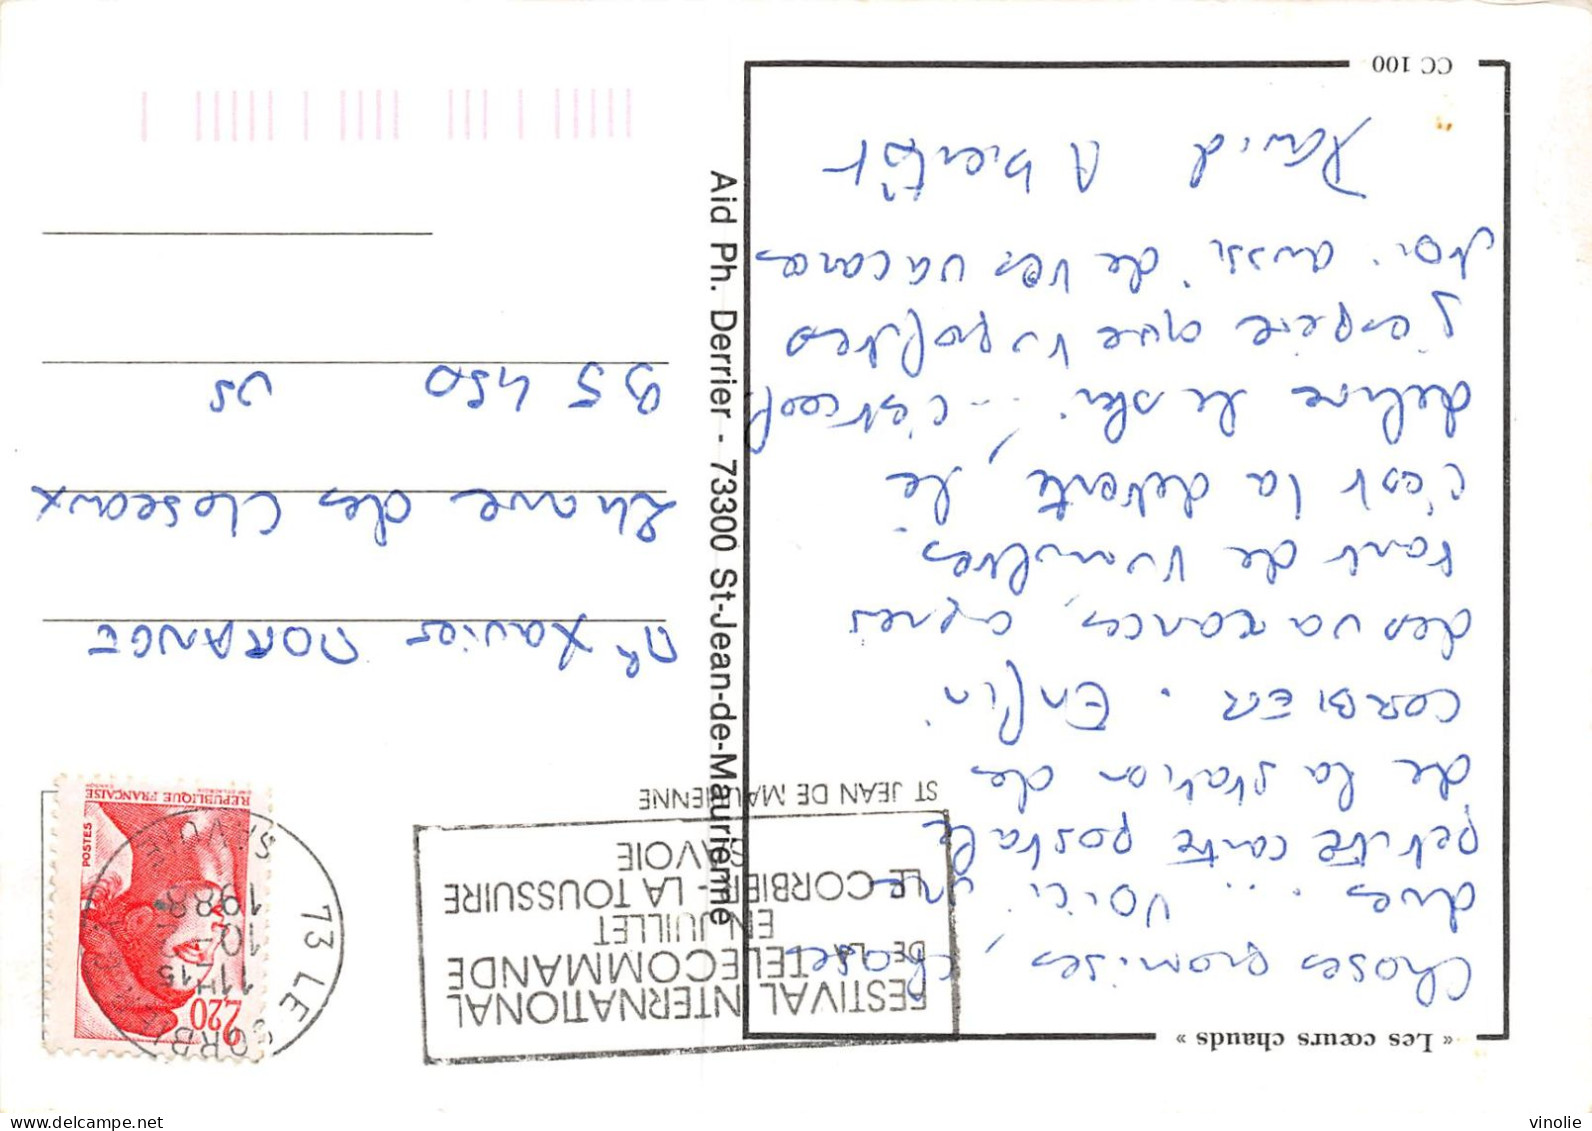 « Les cœurs chauds »
Choses promises, choses
dues... Voici une
petite carte postale
de la station de
CORBIER. Enfin
des vacances, après
tant de
c'est la detente, le
delire le ski... c'est cool,
J'espère que tu profites
toi aussi de tes vacances
David A bientôt
CC 100
Aid Ph. Derrier - 73300 St-Jean-de-Maurienne
FESTIVAL INTERNATIONAL
DE LA TELECOMMANDE
EN JUILLET
LE CORBIER - LA TOUSSUIRE
SAVOIE
ST JEAN DE MAURIENNE
73 LE CORBIER
11H15
10-
1988
SAVOIE
2,20
POSTES
REPUBLIQUE FRANÇAISE
Mr Xavier MORANGE
des Closeaux
95 450 US
vinolie